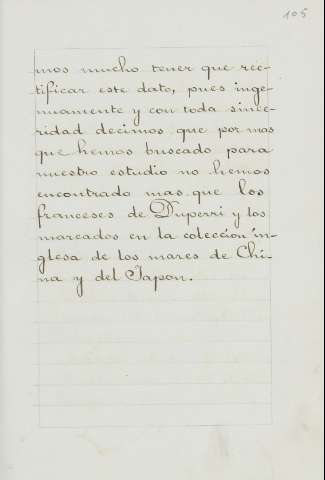 105
mos mucho tener que rec-
tificar este dato, pues inge-
nuamente y con toda since-
ridad decimos que por mas
que hemos buscado para
nuestro estudio no hemos
encontrado mas que los
franceses de Duperri y los
marcados en la coleccion in-
glesa de los mares de Chi-
na y del Japon.